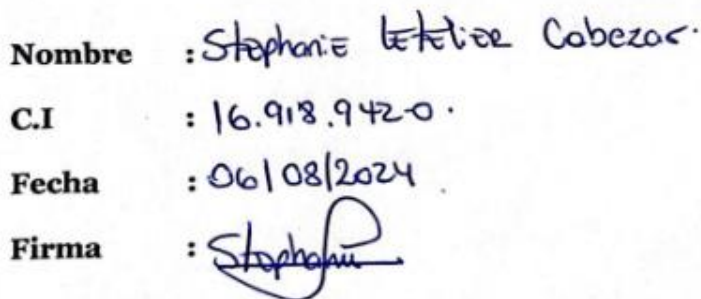 Nombre : Stephanie Letelier Cabezas.
C.I : 16.918.942-0.
Fecha : 06/08/2024
Firma : Stephanie